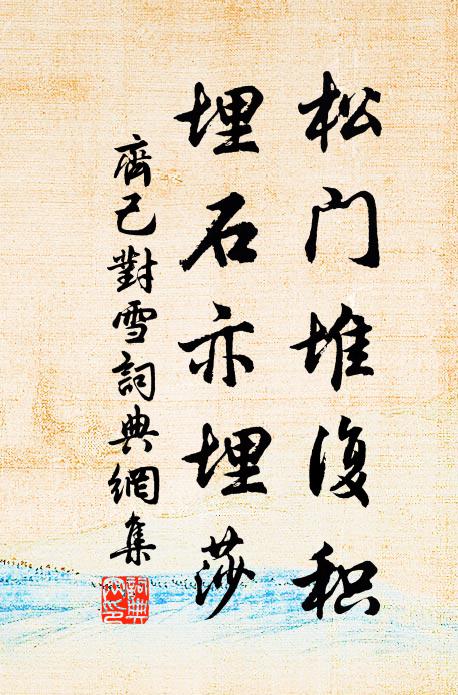 松门堆复积
埋石亦埋莎
齊己對雪詞典網集